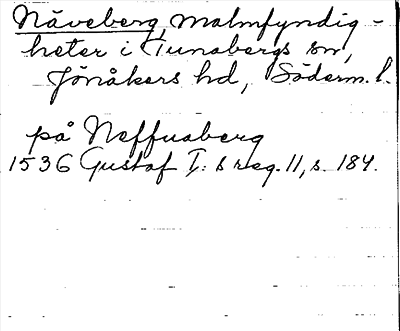 Näveberg, malmfyndig-
heter i Tunabergs sn,
Jönåkers hd, Söderm. l.
på Neffuaberg
1536 Gustaf I:s reg. 11, s. 184.